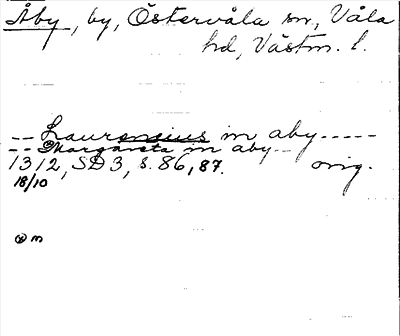 Åby, by, Östervåla sn, Våla
hd, Västm. l.
-- Laurensius in aby -----
-- Margareta in aby --
1312, SD3, s. 86, 87. orig.
18/10